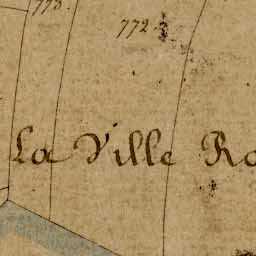 773.
772.
La Ville Ro